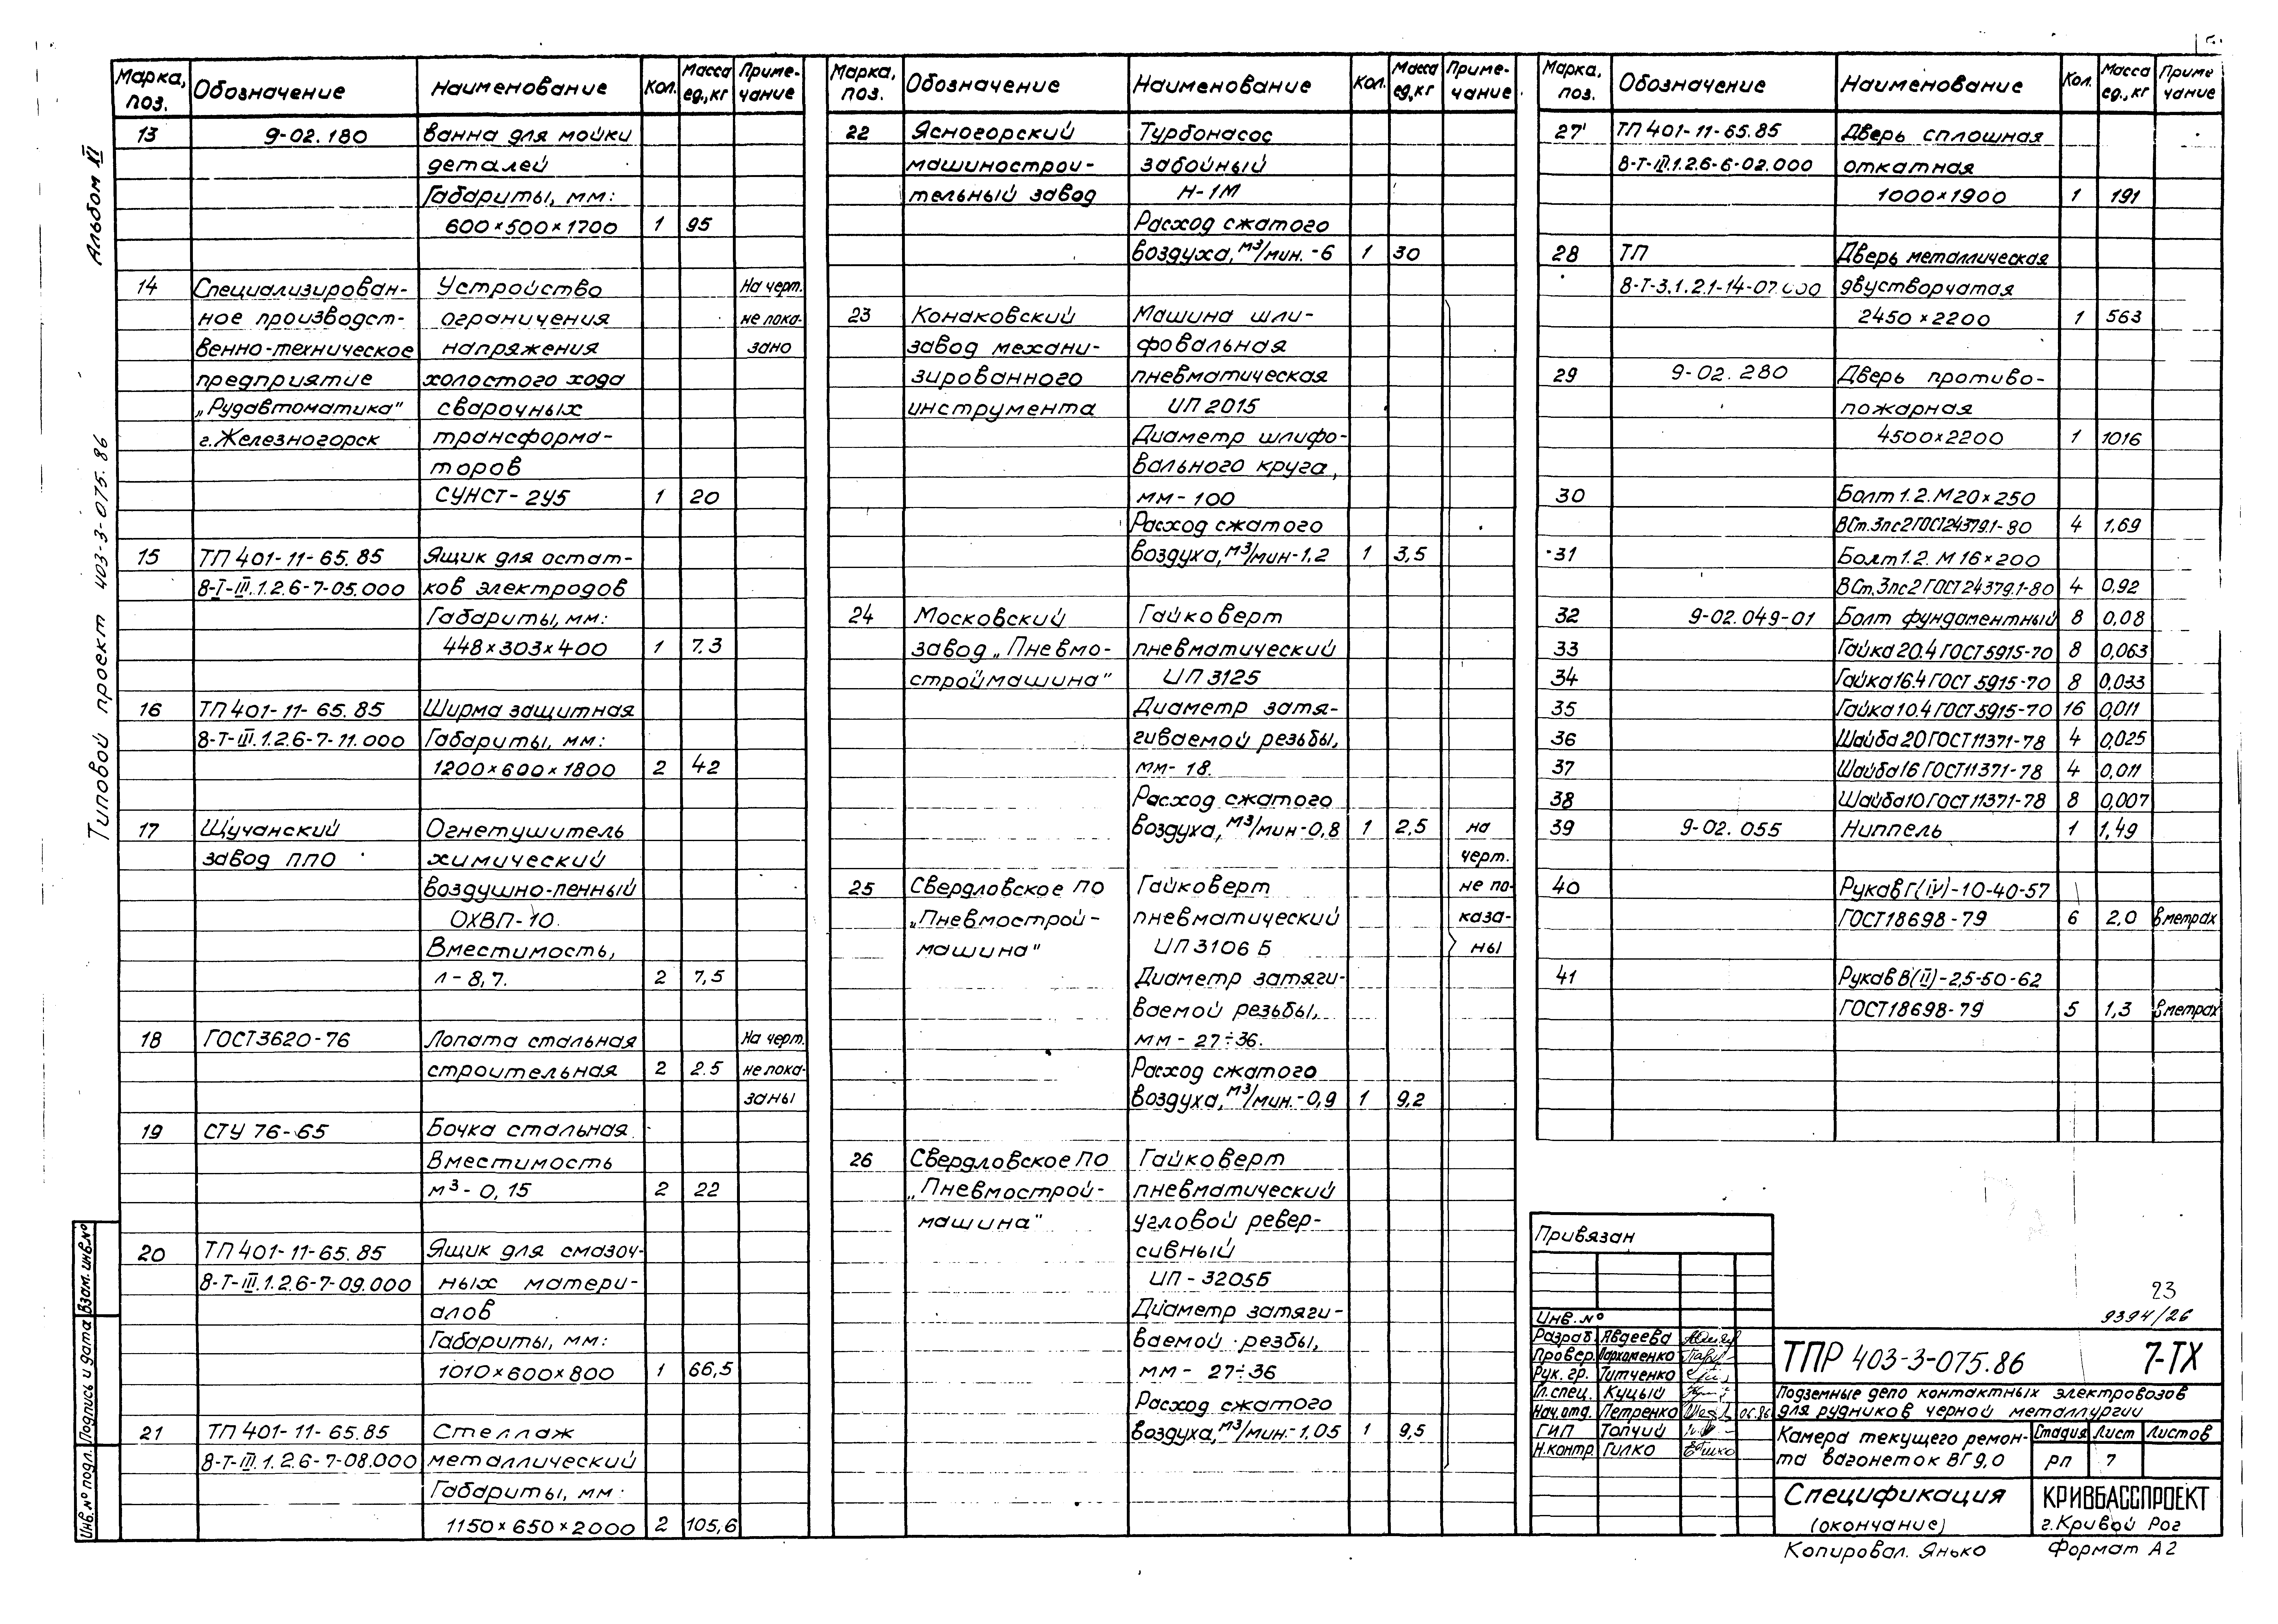 Альбом XI
Типовой проект 403-3-075.86
Марка, поз. Обозначение Наименование Кол. Масса ед., кг Приме-чание
13 9-02.180 ванна для мойки
деталей
Габариты, мм:
600×500×1700 1 95
14 Специализирован- Устройство На черт.
ное производст- ограничения не пока-
венно-техническое напряжения зано
предприятие холостого хода
„Рудавтоматика" сварочных
г.Железногорск трансформа-
торов
СУНСТ-2У5 1 20
15 ТП 401-11-65.85 Ящик для остат-
8-I-III.1.2.6-7-05.000 ков электродов
Габариты, мм:
448×303×400 1 7.3
16 ТП 401-11-65.85 Ширма защитная
8-Т-III.1.2.6-7-11.000 Габариты, мм:
1200×600×1800 2 42
17 Щучанский Огнетушитель
завод ППО химический
воздушно-пенный
ОХВП-10
Вместимость,
л-8,7. 2 7,5
18 ГОСТ3620-76 Лопата стальная На черт.
строительная 2 2.5 не пока-
заны
19 СТУ 76-65 Бочка стальная
Вместимость
м³-0,15 2 22
20 ТП 401-11-65.85 Ящик для смазоч-
8-Т-III.1.2.6-7-09.000 ных матери-
алов
Габариты, мм:
1010×600×800 1 66,5
21 ТП 401-11-65.85 Стеллаж
8-Т-III.1.2.6-7-08.000 металлический
Габариты, мм:
1150×650×2000 2 105,6
Марка, поз. Обозначение Наименование Кол. Масса ед., кг Приме-чание
22 Ясногорский Турбонасос
машинострои- забойный
тельный завод Н-1М
Расход сжатого
воздуха, м³/мин.-6 1 30
23 Конаковский Машина шли-
завод механи- фовальная
зированного пневматическая
инструмента ИП 2015
Диаметр шлифо-
вального круга,
мм-100
Расход сжатого
воздуха, м³/мин-1.2 1 3,5
24 Московский Гайковерт
завод „Пневмо- пневматический
строймашина" ИП 3125
Диаметр затя-
гиваемой резьбы,
мм-18.
Расход сжатого
воздуха, м³/мин-0,8 1 2,5 на
черт.
25 Свердловское ПО Гайковерт не по-
„Пневмострой- пневматический каза-
машина" ИП3106 Б ны
Диаметр затяги-
ваемой резьбы,
мм-27÷36.
Расход сжатого
воздуха, м³/мин.-0,9 1 9,2
26 Свердловское ПО Гайковерт
„Пневмострой- пневматический
машина" угловой ревер-
сивный
ИП-3205Б
Диаметр затяги-
ваемой резбы,
мм-27÷36
Расход сжатого
воздуха, м³/мин.-1,05 1 9,5
Марка, поз. Обозначение Наименование Кол. Масса ед., кг Приме чание
27 ТП 401-11-65.85 Дверь сплошная
8-Т-III.1.2.6-6-02.000 откатная
1000×1900 1 191
28 ТП Дверь металлическая
8-Т-3.1.2.1-14-07.000 двустворчатая
2450×2200 1 563
29 9-02.280 Дверь противо-
пожарная
4500×2200 1 1016
30 Болт 1.2.М20×250
ВСт.3пс2 ГОСТ24379.1-80 4 1,69
31 Болт 1.2.М16×200
ВСт.3пс2 ГОСТ24379.1-80 4 0,92
32 9-02.049-01 Болт фундаментный 8 0,08
33 Гайка 20.4 ГОСТ5915-70 8 0,063
34 Гайка 16.4 ГОСТ 5915-70 8 0,033
35 Гайка 10.4 ГОСТ5915-70 16 0,011
36 Шайба 20 ГОСТ11371-78 4 0,025
37 Шайба 16 ГОСТ11371-78 4 0,011
38 Шайба 10 ГОСТ11371-78 8 0,007
39 9-02.055 Ниппель 1 1,49
40 Рукав Г(IV)-10-40-57
ГОСТ18698-79 6 2,0 в метрах
41 Рукав В(II)-2,5-50-62
ГОСТ18698-79 5 1,3 в метрах
Привязан
Инв.№
23
9394/26
Разраб. Авдеева
Провер. Пархоменко
Рук. гр. Титченко
Гл.спец. Куцый
Нач.отд. Петренко 06.86
ГИП Топчий
Н.контр. Гилко
ТПР 403-3-075.86 7-ТХ
Подземные депо контактных электровозов
для рудников черной металлургии
Камера текущего ремон-
та вагонеток ВГ9,0
Стадия Лист Листов
РП 7
Спецификация
(окончание)
КРИВБАССПРОЕКТ
г.Кривой Рог
Копировал. Янько Формат А2
Инв.№ подл. Подпись и дата Взам. инв.№